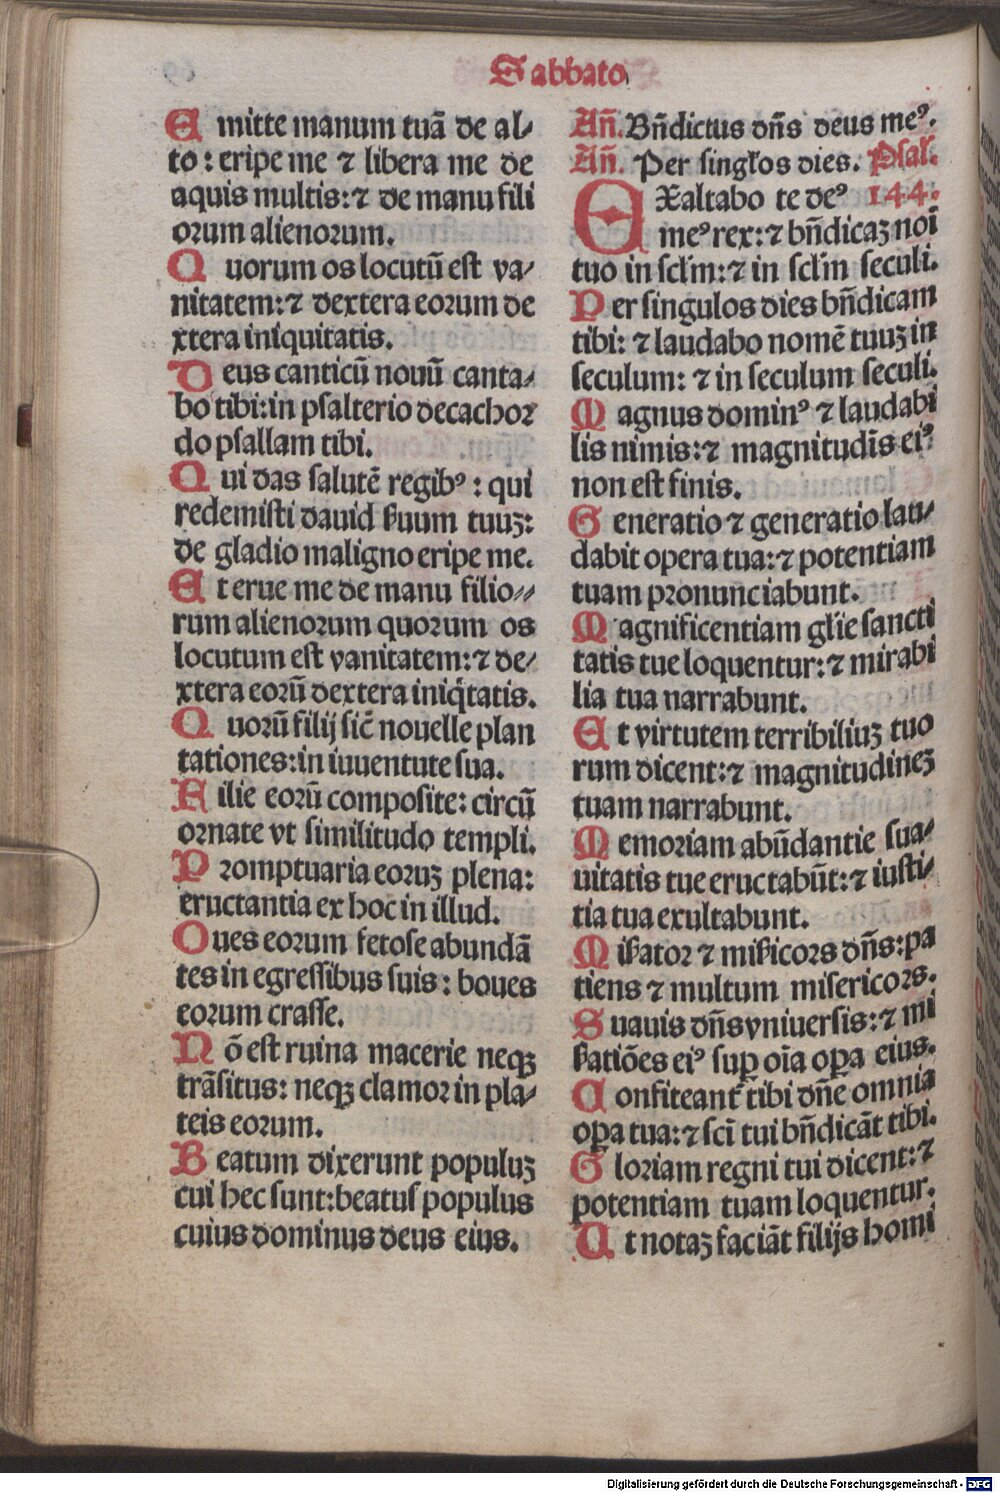 Sabbato
Emitte manum tuā de al⸗
to: eripe me ⁊ libera me de
aquis multis:⁊ de manu fili
orum alienorum.
Quorum os locutū est va⸗
nitatem:⁊ dextera eorum de
xtera iniquitatis.
Deus canticū nouū canta⸗
bo tibi:in psalterio decachor
do psallam tibi.
Qui das salutē regibꝰ: qui
redemisti dauid ẜuum tuuꝫ:
de gladio maligno eripe me.
Et erue me de manu filio⸗
rum alienorum quorum os
locutum est vanitatem:⁊ de⸗
xtera eorū dextera iniq̇tatis.
Quorū filij sic̄ nouelle plan
tationes:in iuuentute sua.
Filie eorū composite: circū
ornate vt similitudo templi.
Promptuaria eoruꝫ plena:
eructantia ex hoc in illud.
Oues eorum fetose abundā
tes in egressibus suis: boues
eorum crasse.
Nō est ruina macerie neqꝫ
trāsitus: neqꝫ clamor in pla⸗
teis eorum.
Beatum dixerunt populuꝫ
cui hec sunt:beatus populus
cuius dominus deus eius.
Añ. Bn̄dictus dn̄s deus meꝰ.
Añ. Per singl̄os dies. Psal.
EXaltabo te deꝰ 144.
meꝰ rex:⁊ bn̄dicaꝫ noī
tuo in scl̄m:⁊ in scl̄m seculi.
Per singulos dies bn̄dicam
tibi: ⁊ laudabo nomē tuuꝫ in
seculum: ⁊ in seculum seculi.
Magnus dominꝰ ⁊ laudabi
lis nimis:⁊ magnitudīs eiꝰ
non est finis.
Generatio ⁊ generatio lau⸗
dabit opera tua:⁊ potentiam
tuam pronunciabunt.
Magnificentiam gl̄ie sancti
tatis tue loquentur:⁊ mirabi
lia tua narrabunt.
Et virtutem terribiliuꝫ tuo
rum dicent:⁊ magnitudineꝫ
tuam narrabunt.
Memoriam abūdantie sua⸗
uitatis tue eructabūt:⁊ iusti⸗
tia tua exultabunt.
Miẜator ⁊ miẜicors dn̄s:pa
tiens ⁊ multum misericors.
Suauis dn̄s vniuersis:⁊ mi
ẜatiōes eiꝰ suꝑ oīa oꝑa eius.
Confiteant᷑ tibi dn̄e omnia
oꝑa tua:⁊ scī tui bn̄dicāt tibi.
Gloriam regni tui dicent:⁊
potentiam tuam loquentur.
Ut notaꝫ faciāt filijs homi
Digitalisierung gefördert durch die Deutsche Forschungsgemeinschaft - DFG